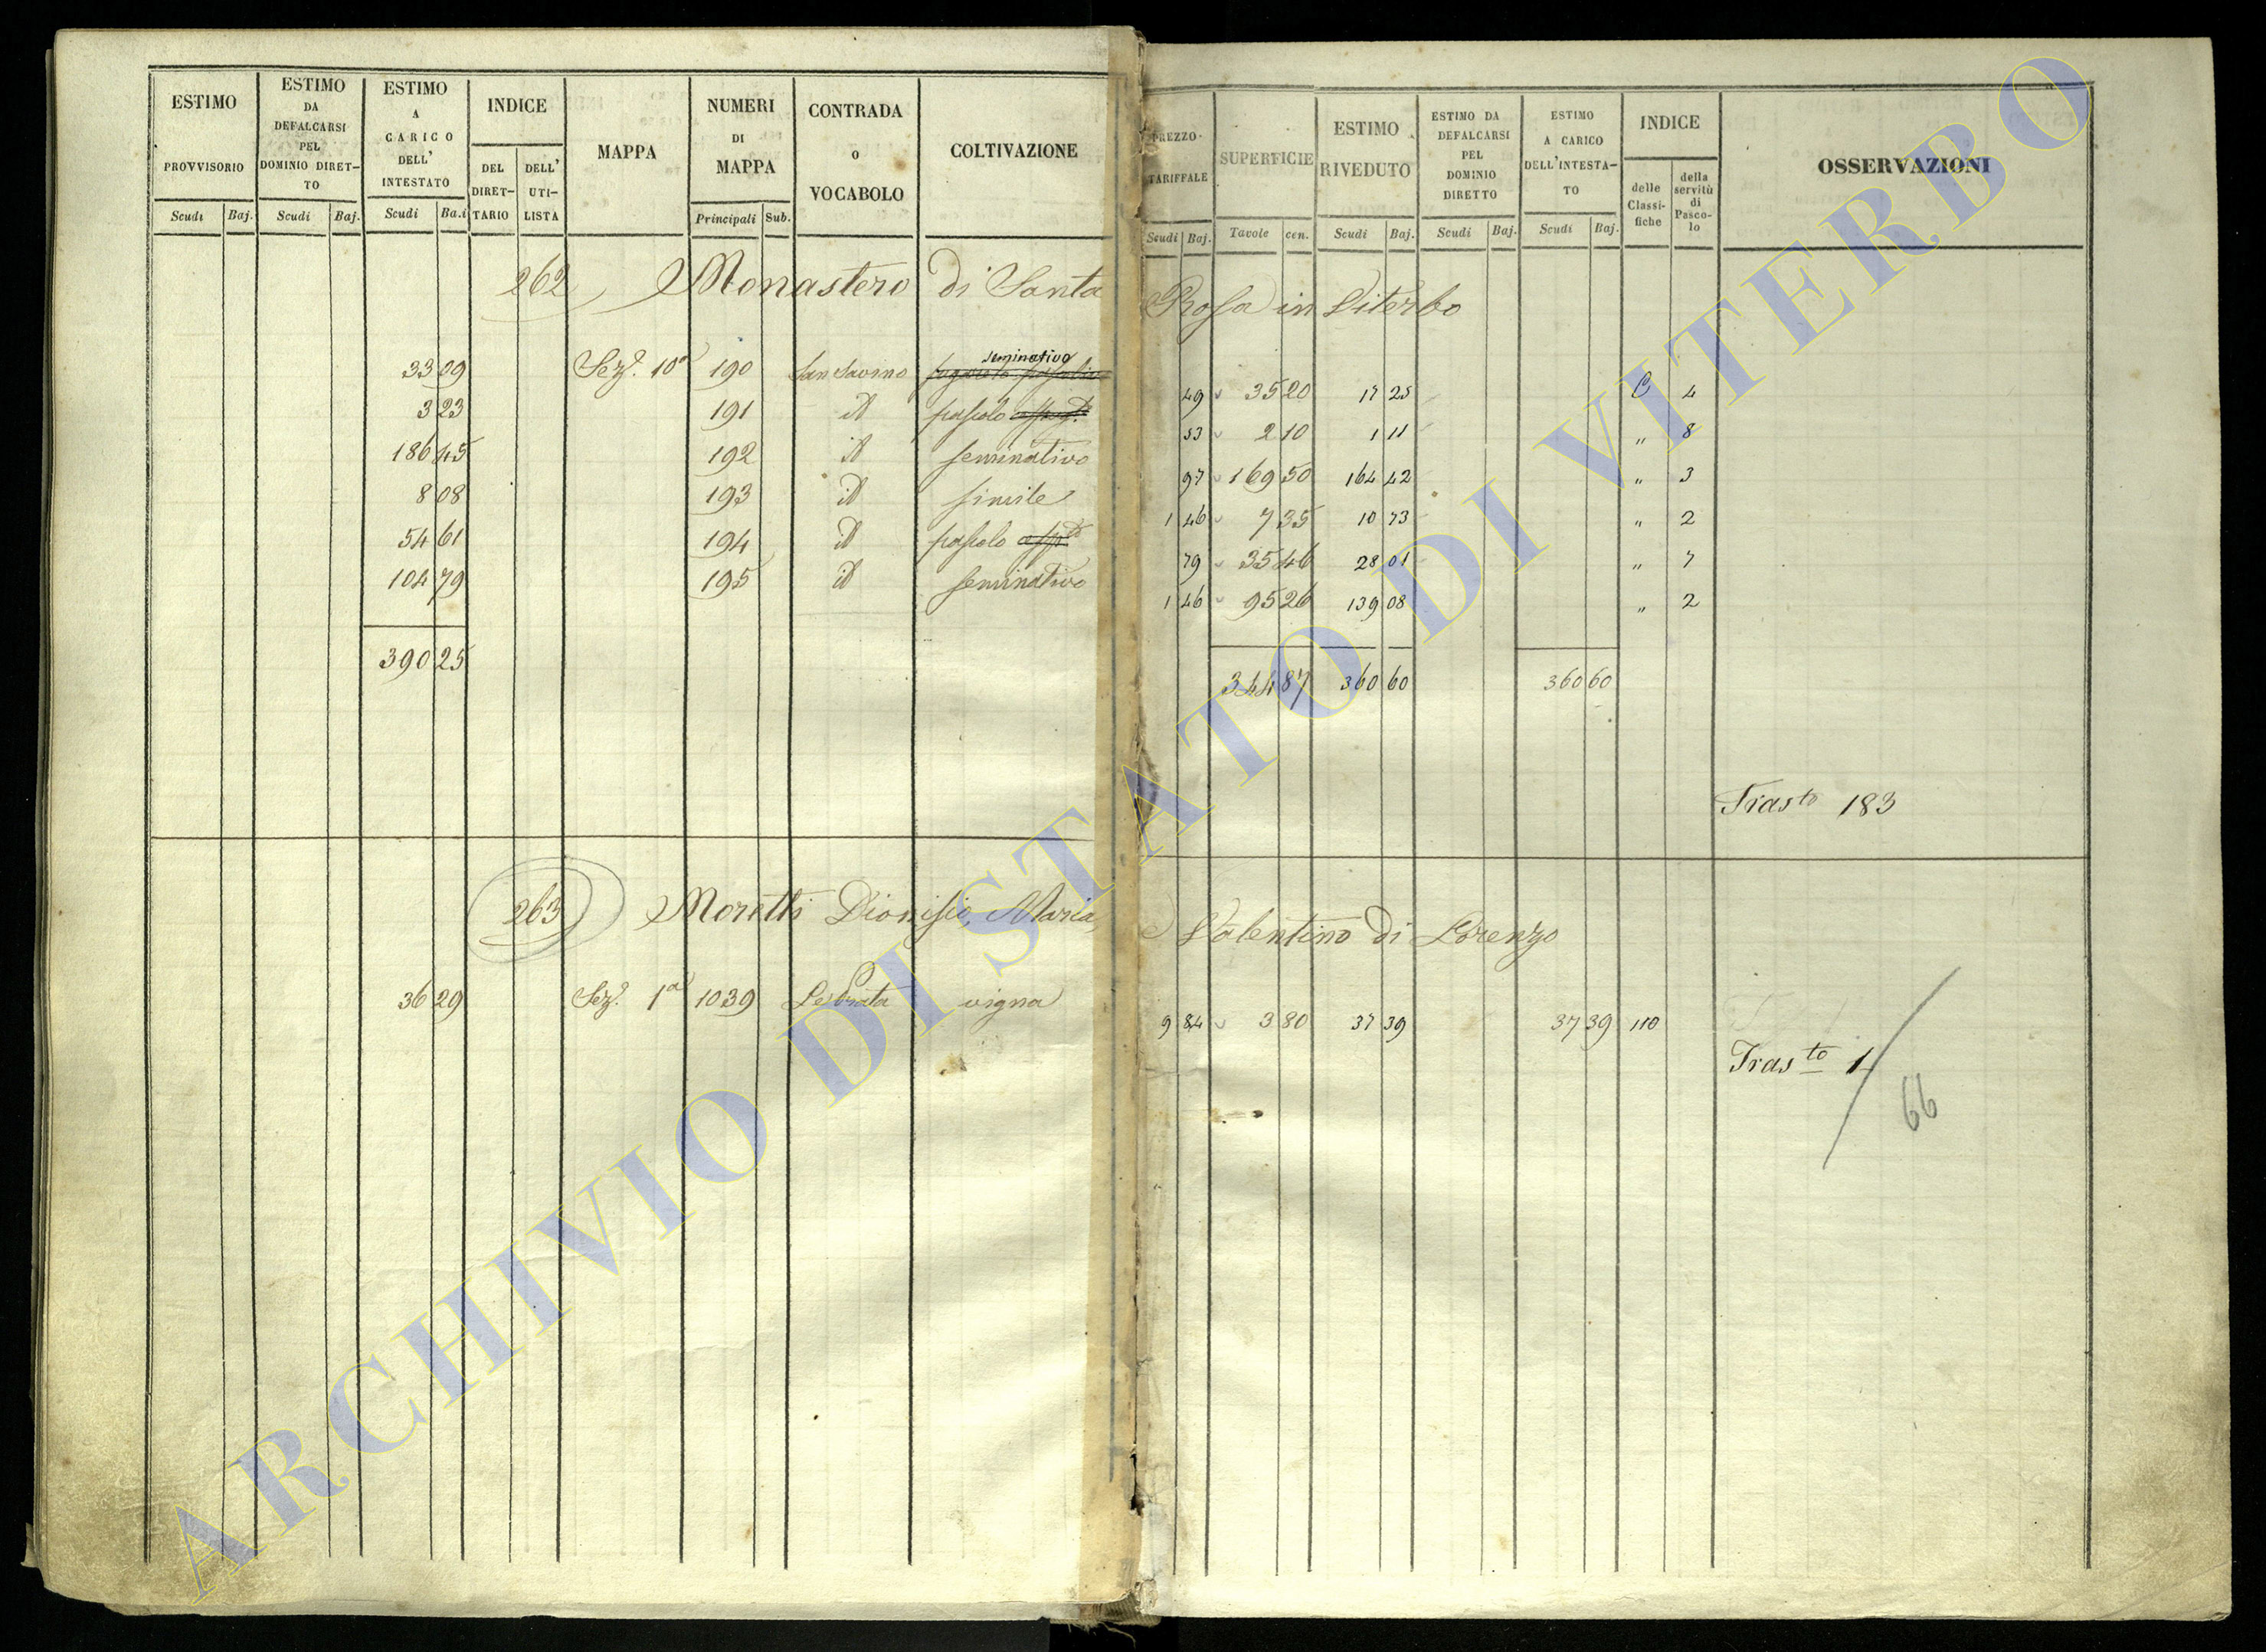 ESTIMO PROVVISORIO
Scudi Baj.
ESTIMO DA DEFALCARSI PEL DOMINIO DIRET-TO
Scudi Baj.
ESTIMO A CARICO DELL' INTESTATO
Scudi Ba.i
INDICE
DEL DIRET-TARIO
DELL' UTI-LISTA
MAPPA
NUMERI DI MAPPA
Principali Sub.
CONTRADA O VOCABOLO
COLTIVAZIONE
PREZZO TARIFFALE
Scudi Baj.
SUPERFICIE
Tavole cen.
ESTIMO RIVEDUTO
Scudi Baj.
ESTIMO DA DEFALCARSI PEL DOMINIO DIRETTO
Scudi Baj.
ESTIMO A CARICO DELL'INTESTA-TO
Scudi Baj.
INDICE
delle Classi-fiche
della servitù di Pasco-lo
OSSERVAZIONI
262 Monastero di Santa Rosa in Viterbo
seminativo
33 09 Sez.e 10a 190 San Savino 49 35 20 17 25 C 4
3 23 191 id pascolo 53 2 10 1 11 " 8
186 45 192 id seminativo 97 169 50 164 42 " 3
8 08 193 id simile 1 46 7 35 10 73 " 2
54 61 194 id pascolo 79 35 46 28 01 " 7
104 79 195 id seminativo 1 46 95 26 139 08 " 2
390 25 344 87 360 60 360 60
Trasto 183
263 Moretti Dionisio, Maria, e Valentino di Lorenzo
36 29 Sez.e 1a 1039 vigna 9 84 3 80 37 39 37 39 110
Trasto 1
66
ARCHIVIO DI STATO DI VITERBO